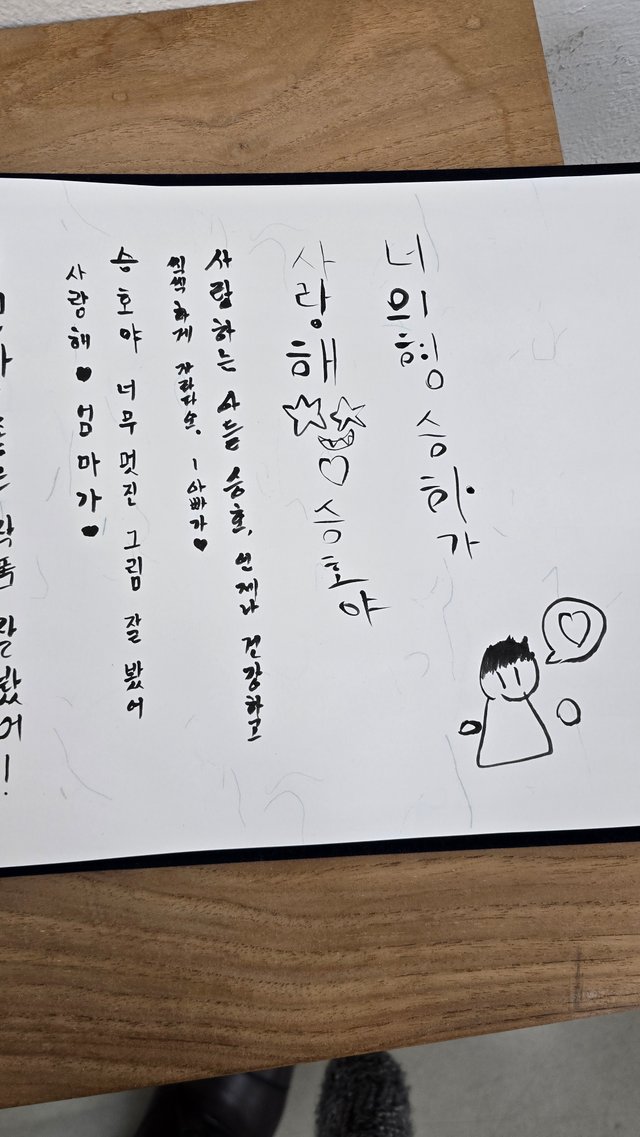 너의 형 승하가
사랑해 ♡ 승호야
사랑하는 아들 승호, 언제나 건강하고
씩씩하게 자라다오. - 아빠가♥
승호야 너무 멋진 그림 잘 봤어
사랑해♥ 엄마가♥
좋은 작품 잘 봤어!